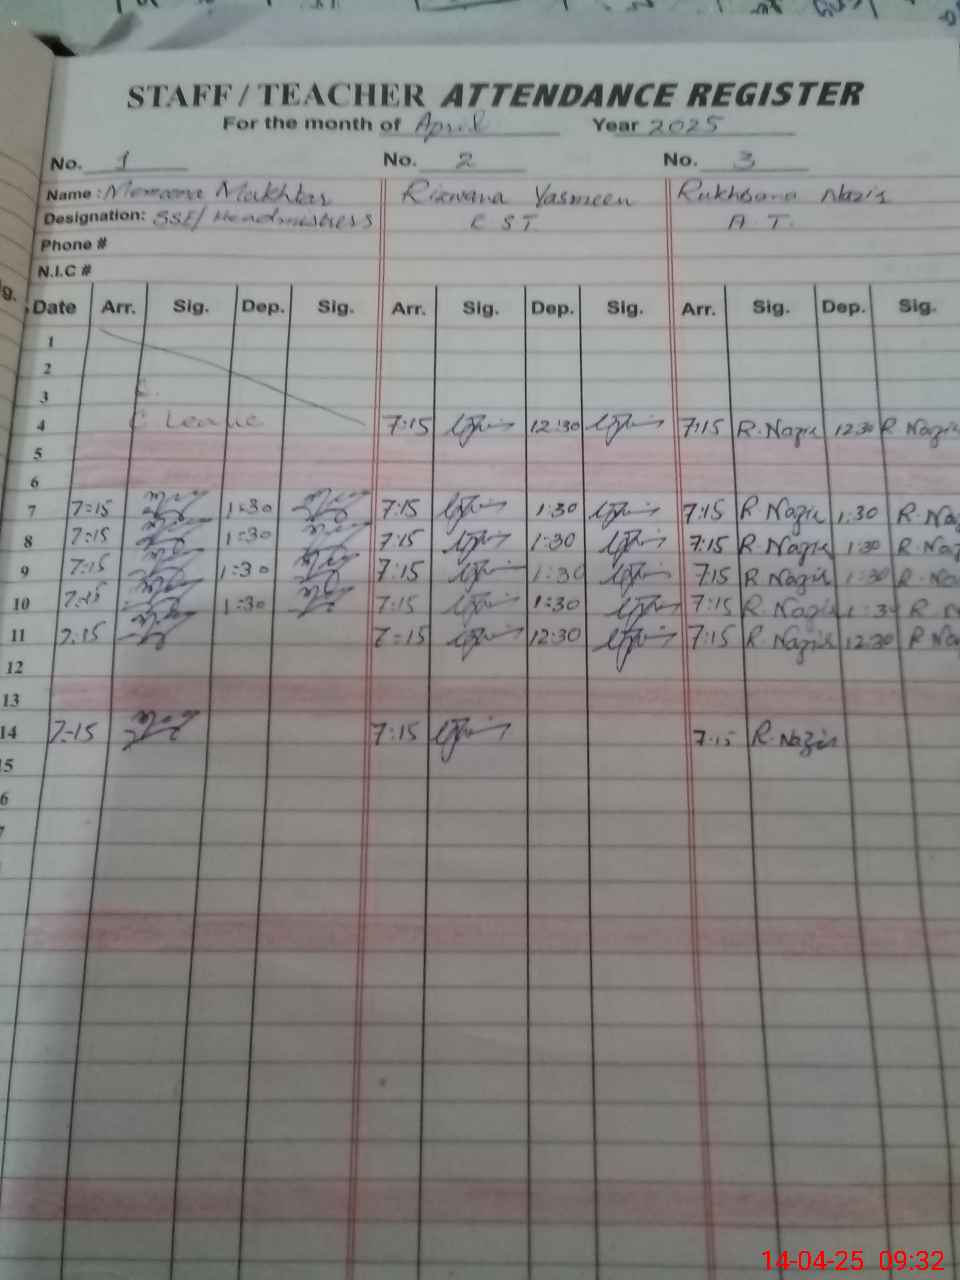 STAFF / TEACHER ATTENDANCE REGISTER
For the month of April Year 2025
No. 1 No. 2 No. 3
Name: Mukhtar Rizwana Yasmeen Rukhsana Nazir
Designation: SSE/ Headmistress C S T. A. T.
Phone #
N.I.C #
Date Arr. Sig. Dep. Sig. Arr. Sig. Dep. Sig. Arr. Sig. Dep. Sig.
1
2
3 C.
4 C Leave 7:15 12:30 7:15 R. Nazir 12:30 R. Nazir
5
6
7 7:15 1:30 7:15 1:30 7:15 R Nazir 1:30 R. Na
8 7:15 1:30 7:15 1:30 7:15 R Nazir 1:30 R. Na
9 7:15 1:30 7:15 1:30 7:15 R Nazir 1:30 R. Na
10 7:15 1:30 7:15 1:30 7:15 R Nazir 1:30 R.
11 7:15 7:15 12:30 7:15 R. Nazir 12:30 R Na
12
13
14 7:15 7:15 7:15 R. Nazir
15
6
7
14-04-25 09:32